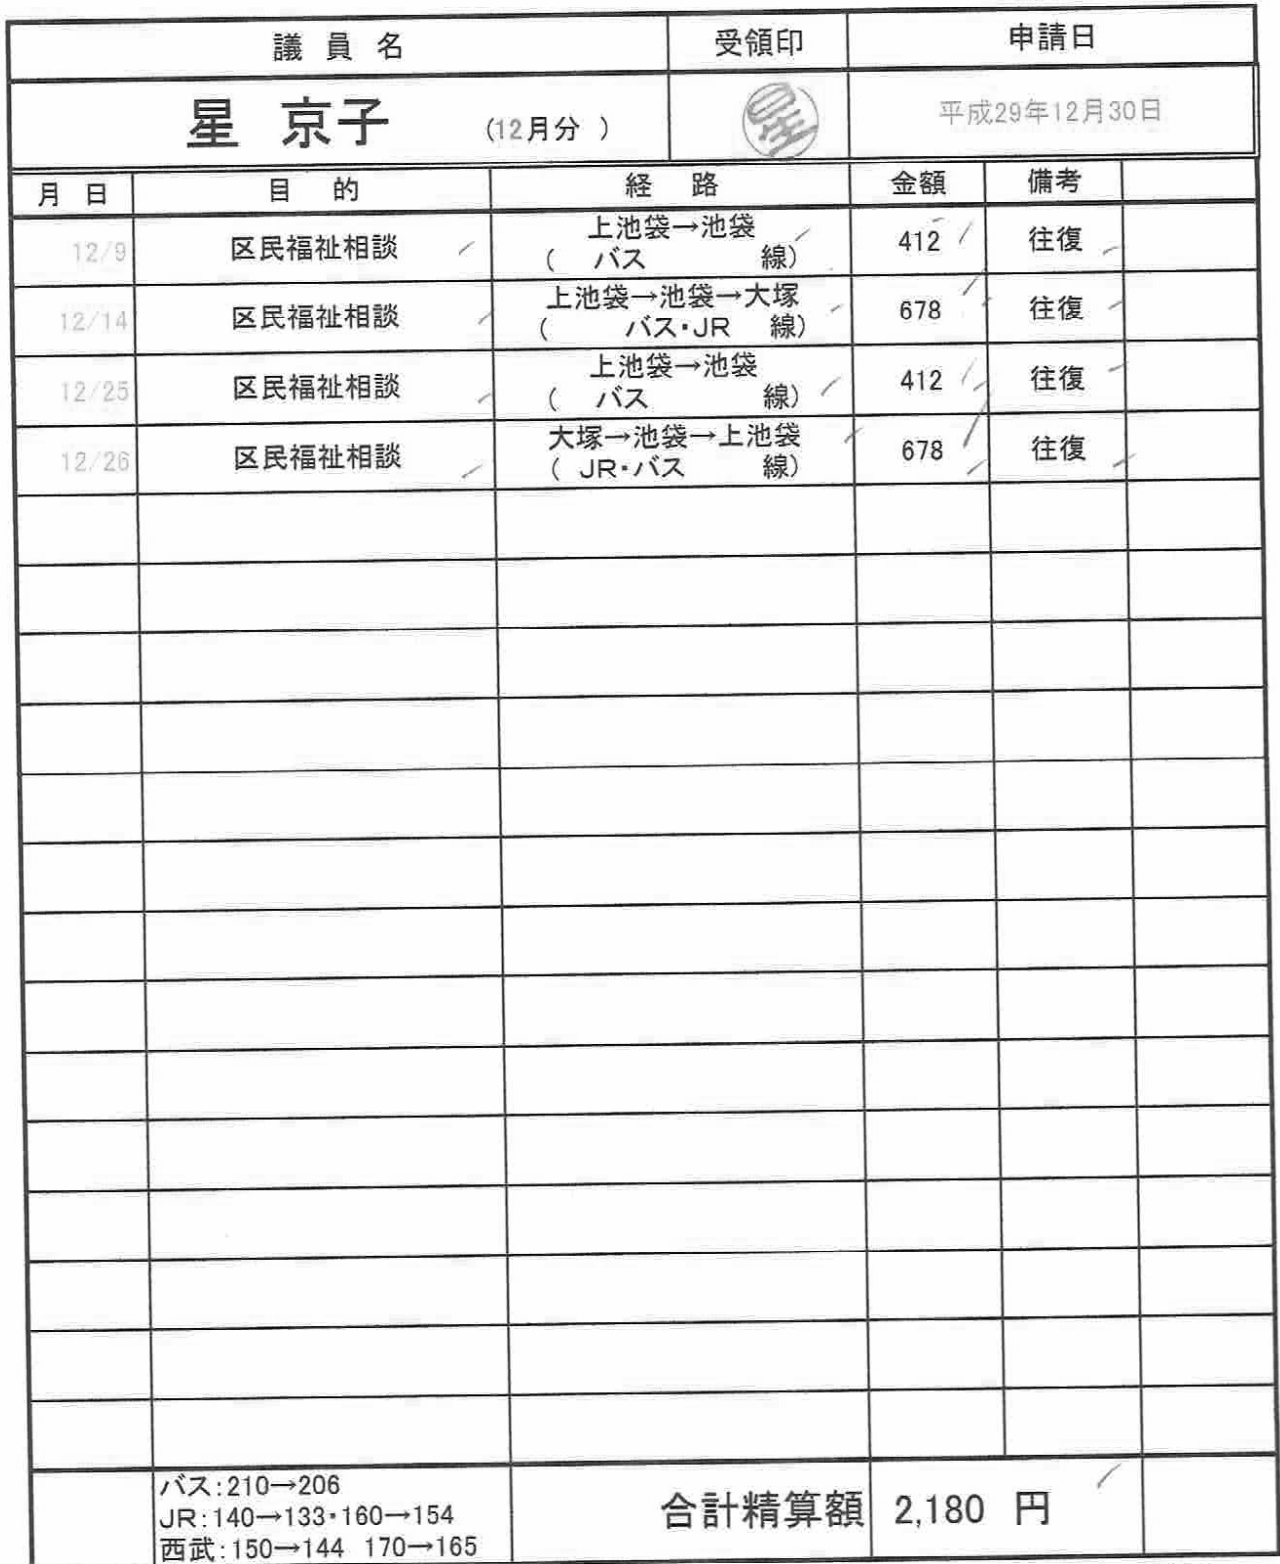 議員名 受領印 申請日
星 京子 (12月分 ) 星 平成29年12月30日
月 日 目 的 経 路 金額 備考
12/9 区民福祉相談 上池袋→池袋 412 往復
( バス 線)
12/14 区民福祉相談 上池袋→池袋→大塚 678 往復
( バス・JR 線)
12/25 区民福祉相談 上池袋→池袋 412 往復
( バス 線)
12/26 区民福祉相談 大塚→池袋→上池袋 678 往復
( JR・バス 線)
バス:210→206
JR:140→133・160→154
西武:150→144 170→165
合計精算額 2,180 円